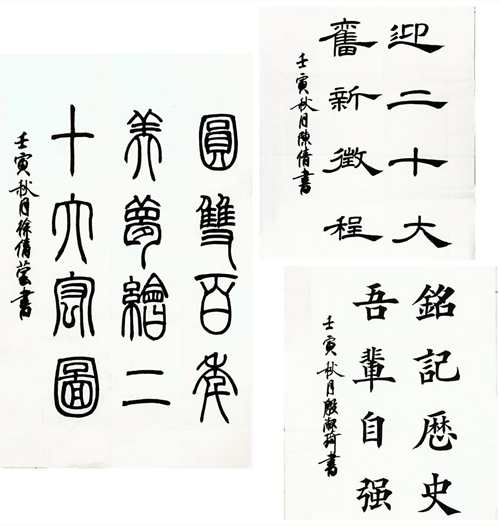 圓雙百年
美夢繪二
十大宏圖
壬寅秋月徐倩莹書
迎二十大
奮新徵程
壬寅秋月陳倩書
銘記歷史
吾輩自强
壬寅秋月殷書